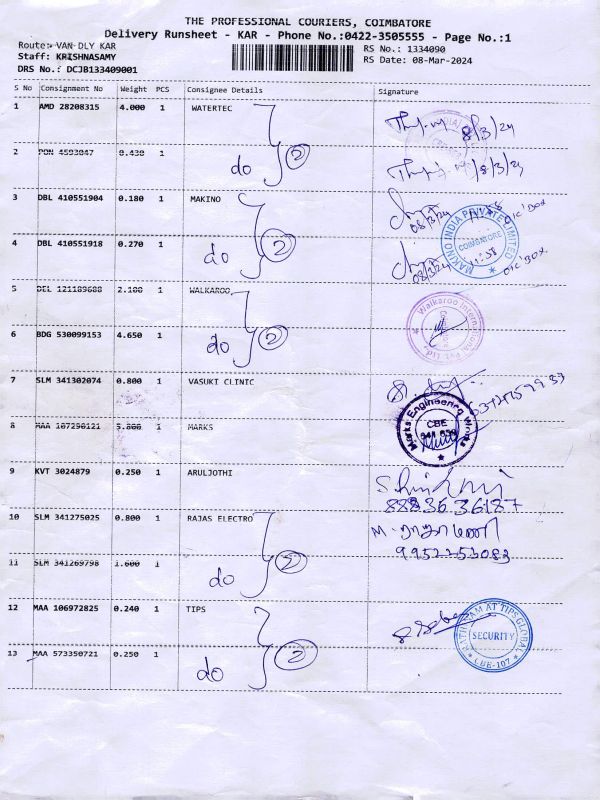 THE PROFESSIONAL COURIERS, COIMBATORE
Delivery Runsheet - KAR - Phone No.:0422-3505555 - Page No.:1
Route: VAN DLY KAR
RS No.: 1334090
Staff: KRISHNASAMY
RS Date: 08-Mar-2024
DRS No.: DCJB133409001
S No Consignment No Weight PCS Consignee Details Signature
1 AMD 28208315 4.000 1 WATERTEC
8/3/24
2 1
do 2
/8/3/24
3 DBL 410551904 0.180 1 MAKINO
08/3/24
4 DBL 410551918 0.270 1
do 2
08/3/24
MAKINO INDIA PRIVATE LIMITED
COIMBATORE
5 DEL 121189688 2.188 1 WALKAROO
Walkaroo International Pvt. Ltd.
6 BDG 530099153 4.650 1
do 2
7 SLM 341302074 0.800 1 VASUKI CLINIC
8 MAA 107290121 1 MARKS
Marks Engineering Works
CBE
9 KVT 3024879 0.250 1 ARULJOTHI
88836 36187
10 SLM 341275025 0.800 1 RAJAS ELECTRO
M.
11 SLM 341269798 1.600 1
do 2
12 MAA 106972825 0.240 1 TIPS
AT TIPS GLOBAL
SECURITY
CBE-107
13 MAA 573350721 0.250 1
do 2